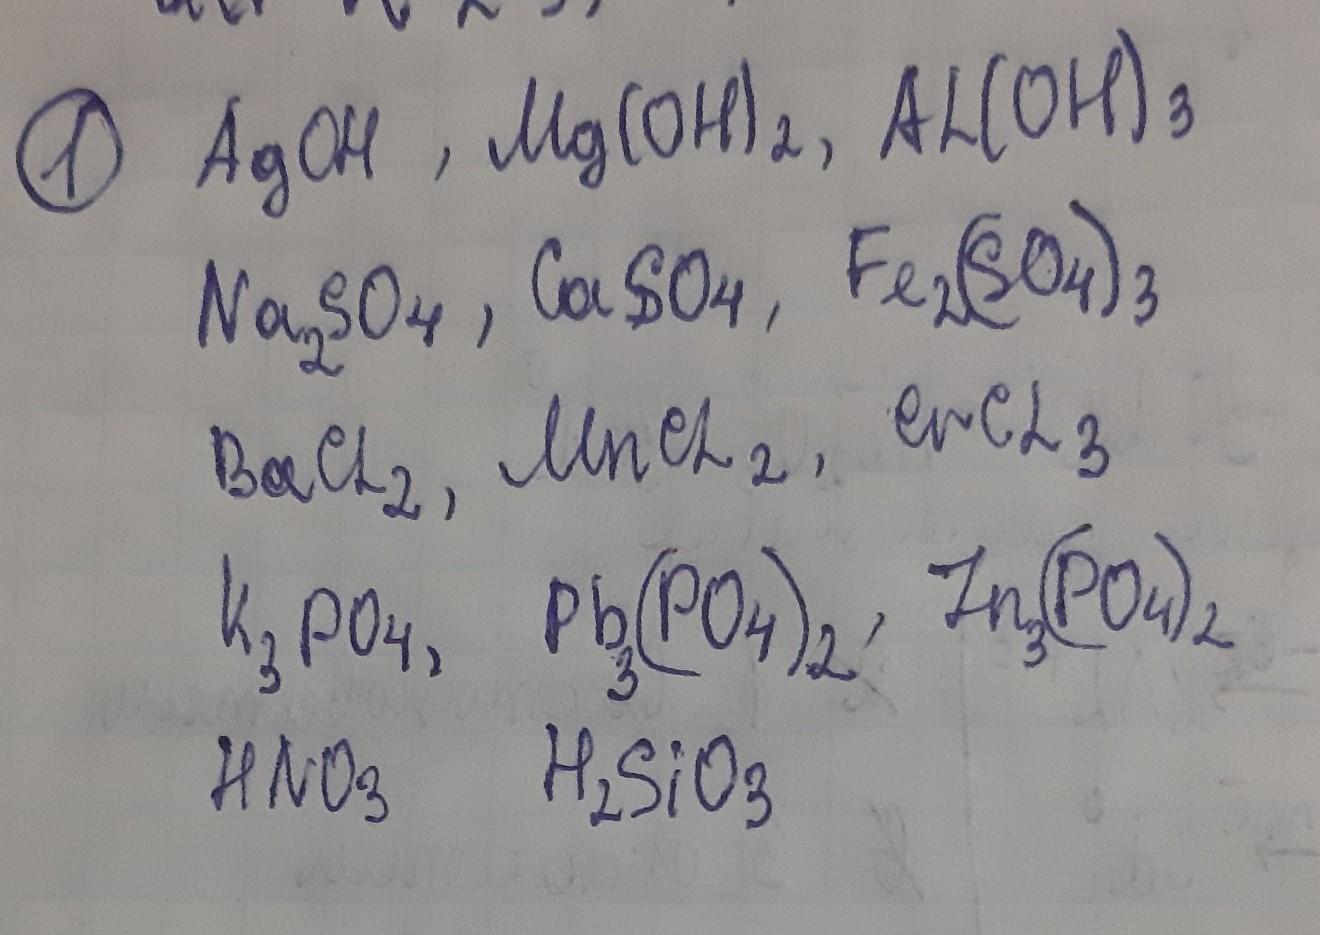 ① AgOH, Mg(OH)2, AL(OH)3
Na2SO4, CaSO4, Fe2(SO4)3
BaCL2, MnCL2, CrCL3
K3PO4, Pb3(PO4)2, Zn3(PO4)2
HNO3 H2SiO3